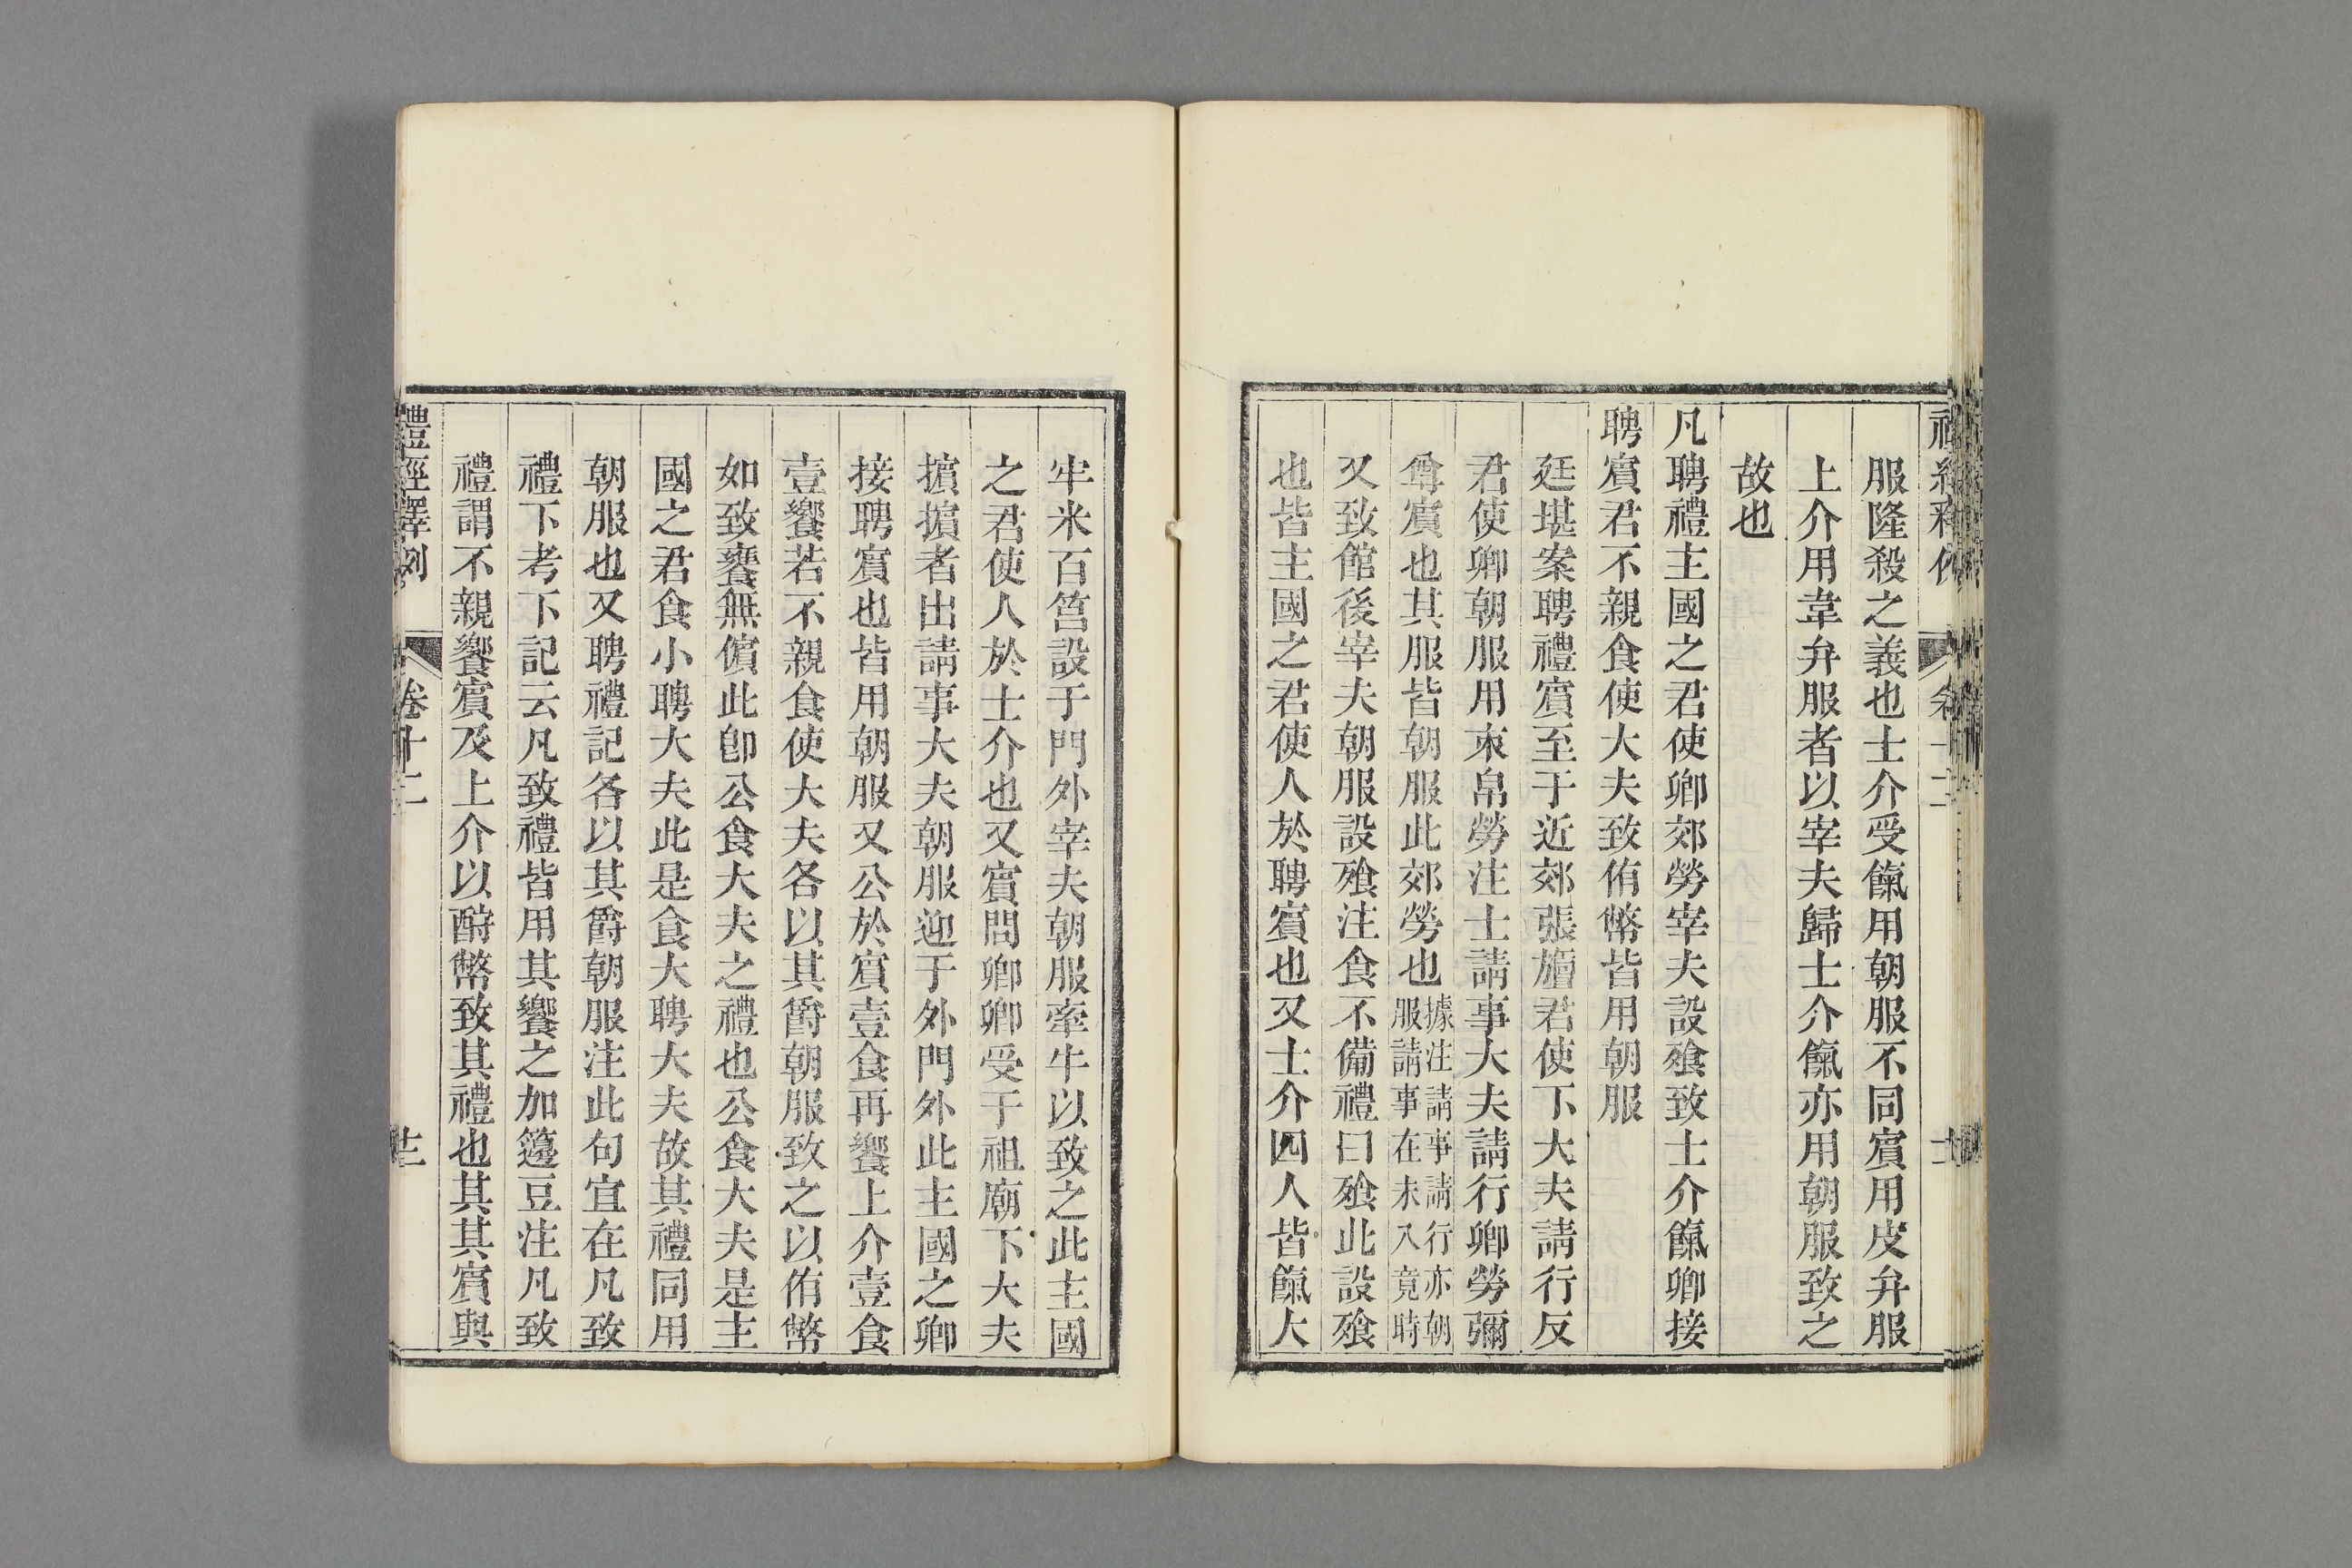 服隆殺之義也士介受餼用朝服不同賓用皮弁服
上介用韋弁服者以宰夫歸士介餼亦用朝服致之
故也
凡聘禮主國之君使卿郊勞宰夫設飧致士介餼卿接
聘賓君不親食使大夫致侑幣皆用朝服
廷堪案聘禮賓至于近郊張旜君使下大夫請行反
君使卿朝服用束帛勞注士請事大夫請行卿勞彌
尊賓也其服皆朝服此郊勞也據注請事請行亦朝服請事在未入竟時
又致館後宰夫朝服設飧注食不備禮曰飧此設飧
也皆主國之君使人於聘賓也又士介四人皆餼大
牢米百筥設于門外宰夫朝服牽牛以致之此主國
之君使人於士介也又賓問卿卿受于祖廟下大夫
擯擯者出請事大夫朝服迎于外門外此主國之卿
接聘賓也皆用朝服又公於賓壹食再饗上介壹食
壹饗若不親食使大夫各以其爵朝服致之以侑幣
如致饔無儐此卽公食大夫之禮也公食大夫是主
國之君食小聘大夫此是食大聘大夫故其禮同用
朝服也又聘禮記各以其爵朝服注此句宜在凡致
禮下考下記云凡致禮皆用其饗之加籩豆注凡致
禮謂不親饗賓及上介以酬幣致其禮也其其賓與
禮經釋例 卷十二 十三